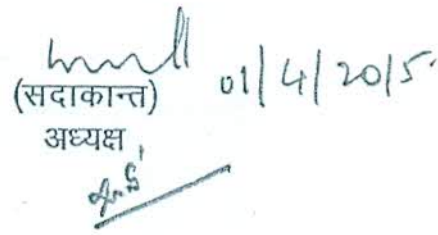 01/4/2015
(सदाकान्त)
अध्यक्ष